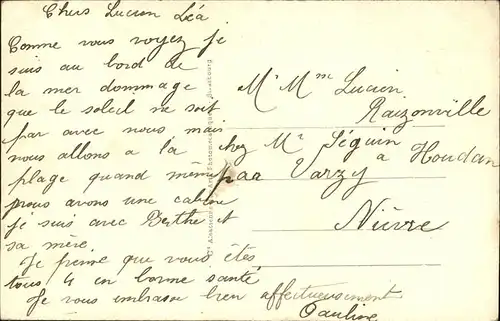 Chers Lucien Léa
Comme vous voyez je
suis au bord de
la mer dommage
que le soleil ne soit
pas avec nous mais
nous allons a la
plage quand même
nous avons une cabine
je suis avec Berthe et
sa mère.
Je pense que vous êtes
tous 4 en bonne santé
Je vous embrasse bien affectueusement
Pauline
Mr Mme Lucien
Raizonville
chez Mr Séguin
a Houdan
par Varzy
Nièvre